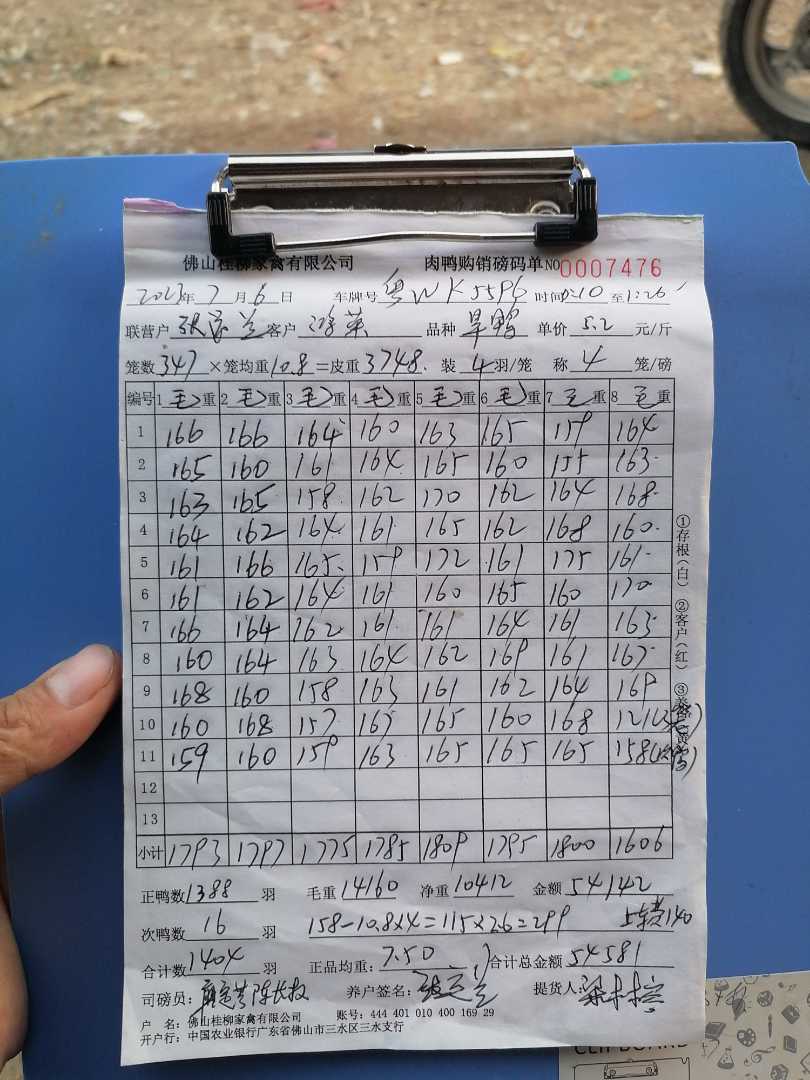 佛山桂柳家禽有限公司 肉鸭购销磅码单NO 0007476
2023年7月6日 车牌号 粤WK5596 时间 0:10 至 1:26
联营户 客户 鸿荣 品种 旱鸭 单价 5.2 元/斤
笼数 347 ×笼均重 10.8 =皮重 3748. 装 4 羽/笼 称 4 笼/磅
编号 1 毛重 2 毛重 3 毛重 4 毛重 5 毛重 6 毛重 7 毛重 8 毛重
1 166 166 164 160 163 165 159 164
2 165 160 161 164 165 160 155 163
3 163 165 158 162 170 162 164 168
4 164 162 164 161 165 162 168 160
5 161 166 165 159 172 161 175 161
6 161 162 164 161 160 165 160 170
7 166 164 162 161 161 164 161 163
8 160 164 163 164 162 169 161 167
9 168 160 158 163 161 162 164 169
10 160 168 157 165 165 160 168 121(3笼)
11 159 160 159 163 165 165 165 158
12
13
小计 1793 1797 1775 1785 1809 1795 1800 1606
①存根(白) ②客户(红)
正鸭数 1388 羽 毛重 14160 净重 10412 金额 54142
次鸭数 16 羽 158-10.8×4=115×2.6=299 140
合计数 1404 羽 正品均重: 7.50 合计总金额 54581
司磅员: 养户签名: 提货人:
户 名: 佛山桂柳家禽有限公司 账号: 444 401 010 400 169 29
开户行: 中国农业银行广东省佛山市三水区三水支行
CLIP BOARD